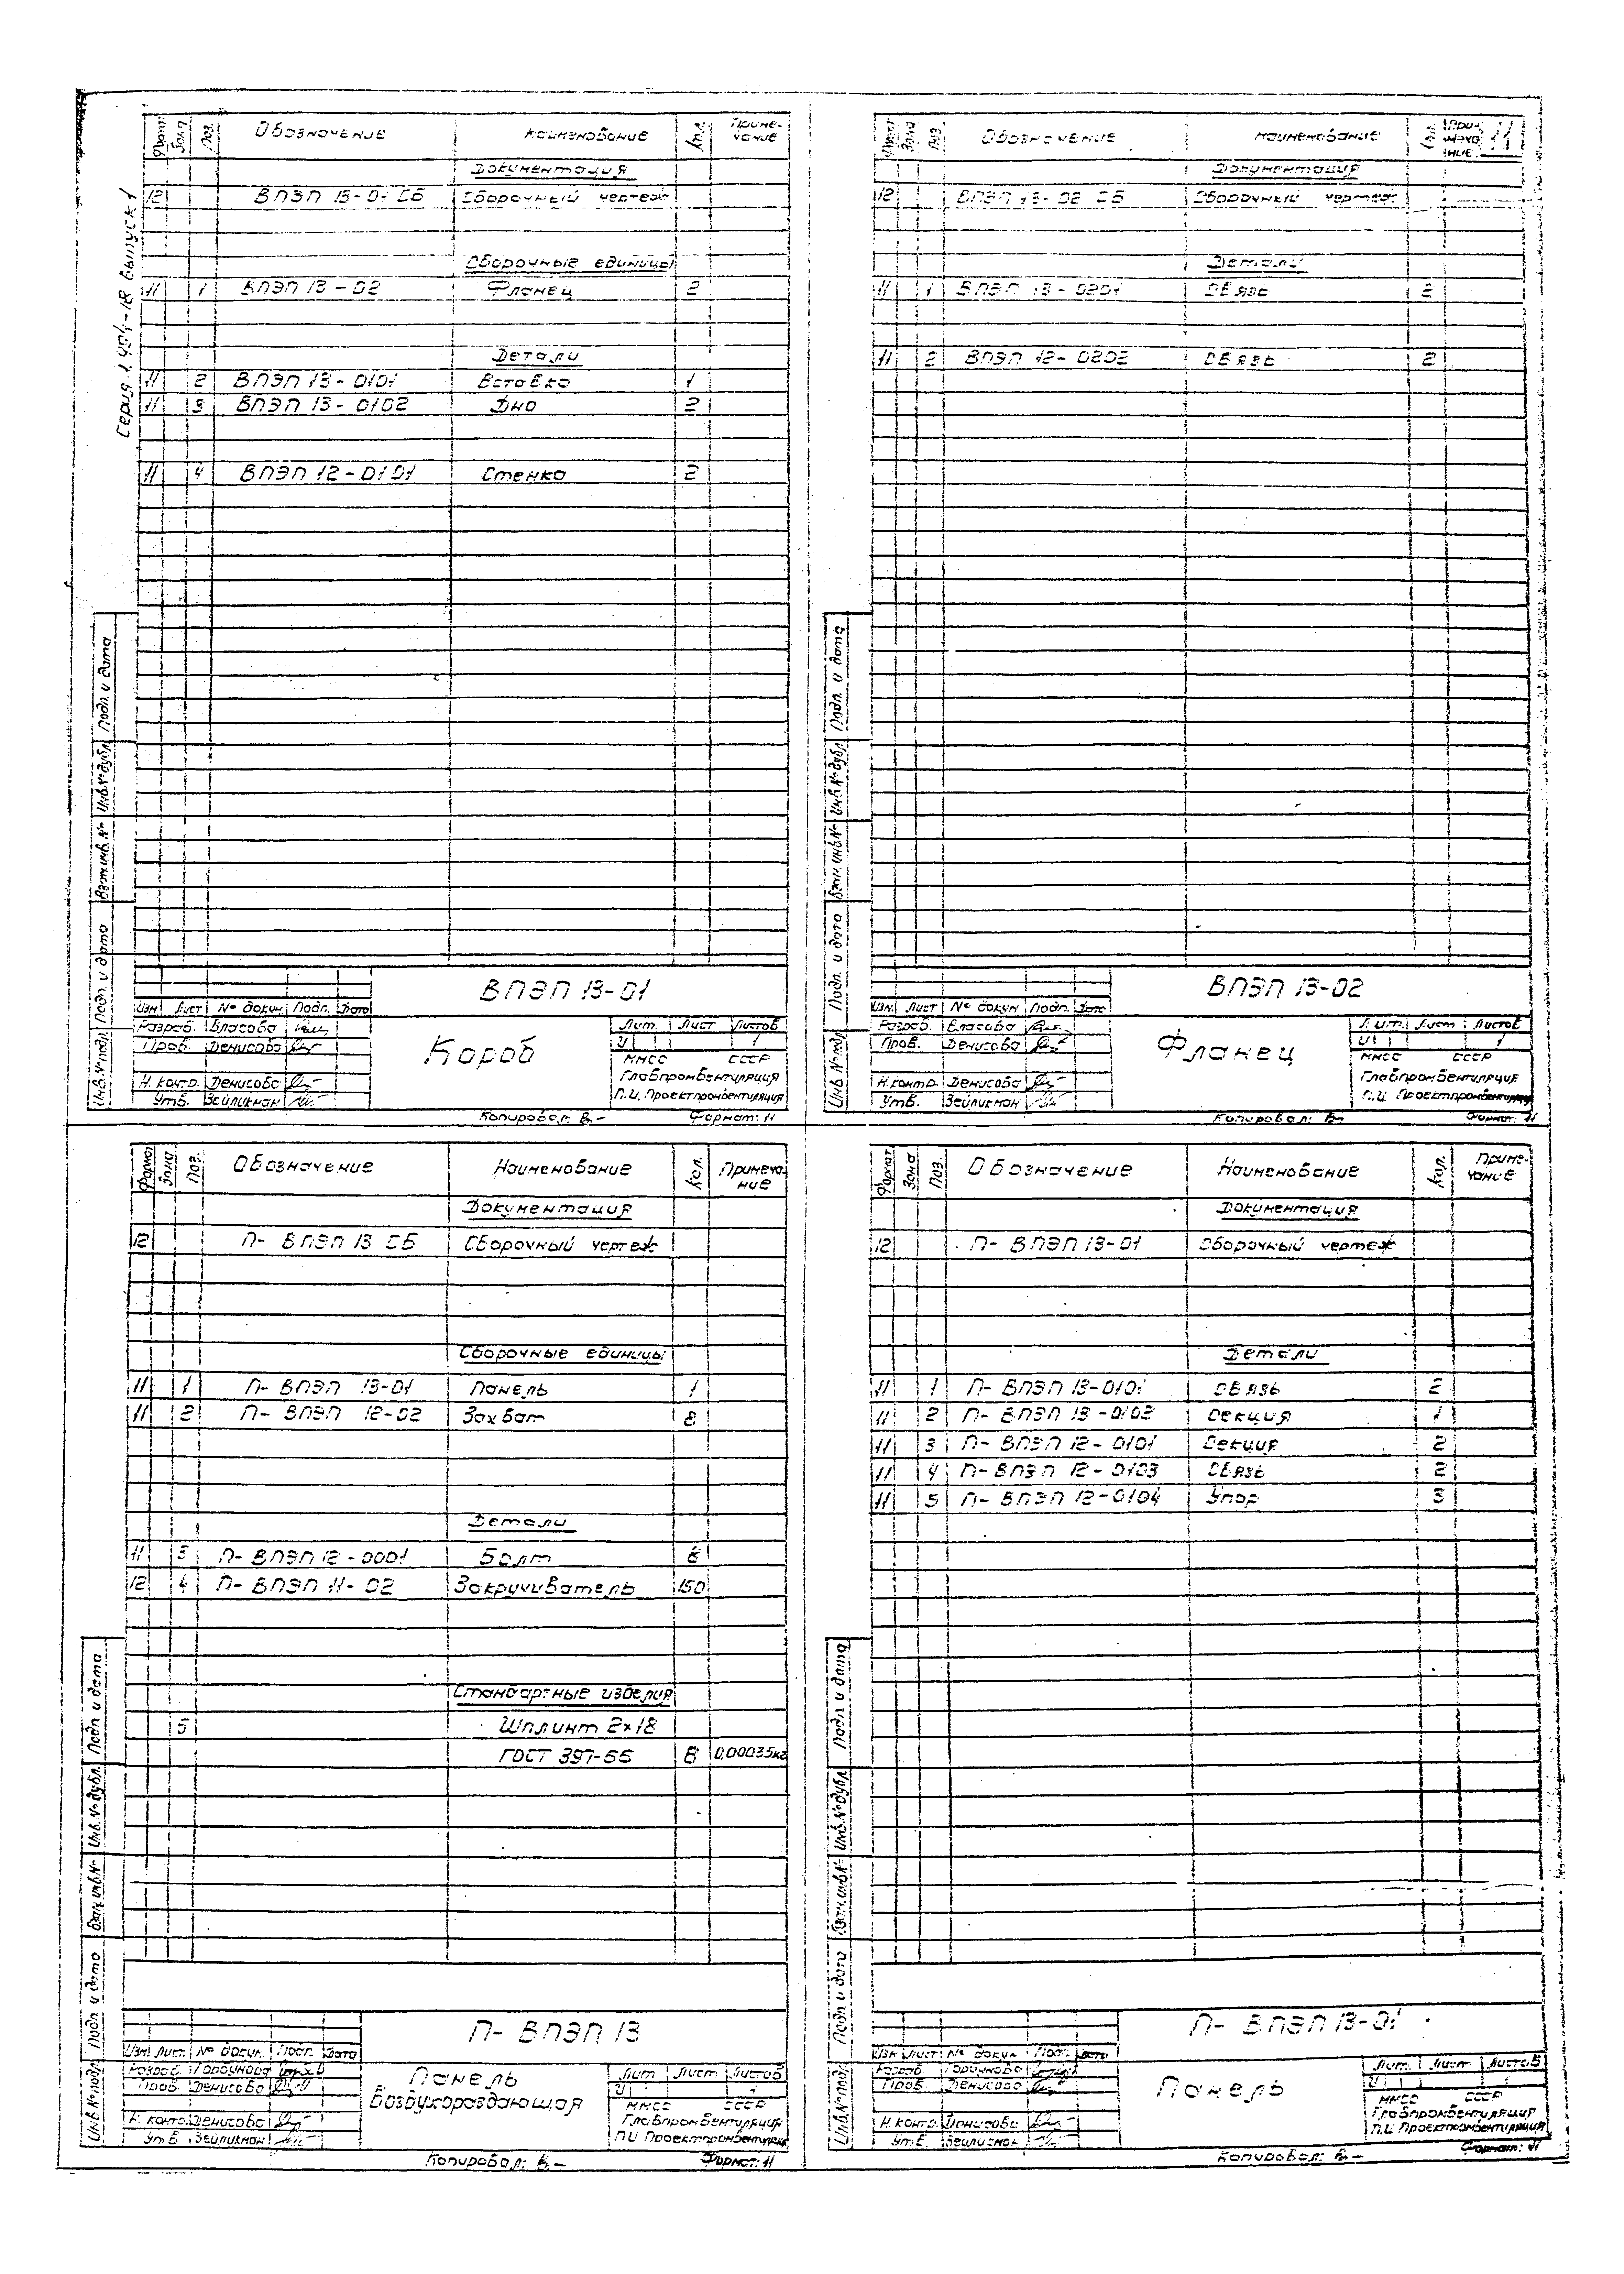 Серия 1.494-18 выпуск 1
Формат Зона Поз. Обозначение Наименование Кол. Приме-
чание
Документация
12 ВПЭП 13-01 СБ Сборочный чертеж
Сборочные единицы
11 1 ВПЭП 13-02 Фланец 2
Детали
11 2 ВПЭП 13-0101 Вставка 1
11 3 ВПЭП 13-0102 Дно 2
11 4 ВПЭП 12-0101 Стенка 2
Подп. и дата
Инв. № дубл.
Взам. инв. №
Подп. и дата
Инв. № подл.
ВПЭП 13-01
Изм Лист № докум. Подп. Дата
Разраб. Власова
Пров. Денисова
Н. контр. Денисова
Утв. Зейликман
Короб
Лит. Лист Листов
И 1
ММСС СССР
Главпромвентиляция
П.И. Проектпромвентиляция
Копировал: В- Формат: 11
Формат Зона Поз Обозначение Наименование Кол. При-
меча
ние 11
Документация
12 ВПЭП 13-02 СБ Сборочный чертеж
Детали
11 1 ВПЭП 13-0201 Связь 2
11 2 ВПЭП 12-0202 Связь 2
Подп. и дата
Инв. № дубл
Взам. инв. №
Подп. и дата
Инв № подл
ВПЭП 13-02
Изм Лист № докум Подп. Дата
Разраб. Власова
Пров. Денисова
Н. контр. Денисова
Утв. Зейликман
Фланец
Лит. Лист Листов
И 1
ММСС СССР
Главпромвентиляция
П.И. Проектпромвентиляция
Копировал: В- Формат: 11
Формат Зона Поз. Обозначение Наименование Кол. Примеча-
ние
Документация
12 П- ВПЭП 13 СБ Сборочный чертеж
Сборочные единицы
11 1 П- ВПЭП 13-01 Панель 1
11 2 П- ВПЭП 12-02 Захват 8
Детали
11 3 П- ВПЭП 12-0001 Болт 8
12 4 П- ВПЭП 11-02 Закручиватель 150
Стандартные изделия
5 Шплинт 2×18
ГОСТ 397-66 8 0,00035кг
Подп. и дата
Инв. № дубл.
Взам. инв. №
Подп. и дата
Инв № подл
П- ВПЭП 13
Изм Лист. № докум. Подп. Дата
Разраб. Горбунова
Пров. Денисова
Н. контр. Денисова
Утв. Зейликман
Панель
Воздухораздающая
Лит Лист Листов
И 1
ММСС СССР
Главпромвентиляция
П.И. Проектпромвентиляция
Копировал: В- Формат: 11
Формат Зона Поз Обозначение Наименование Кол. Приме-
чание
Документация
12 П- ВПЭП 13-01 Сборочный чертеж
Детали
11 1 П- ВПЭП 13-0101 Связь 2
11 2 П- ВПЭП 13-0102 Секция 1
11 3 П- ВПЭП 12-0101 Секция 2
11 4 П- ВПЭП 12-0103 Связь 2
11 5 П- ВПЭП 12-0104 Упор 3
Подп. и дата
Инв. № дубл
Взам. инв. №
Подп. и дата
Инв. № подл.
П- ВПЭП 13-01
Изм Лист № докум. Подп. Дата
Разраб Горбунова
Пров. Денисова
Н. контр. Денисова
Утв. Зейликман
Панель
Лит. Лист Листов
И 1
ММСС СССР
Главпромвентиляция
П.И. Проектпромвентиляция
Копировал: В- Формат: 11